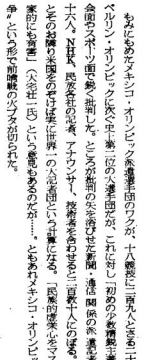 もみにもめたメキシコ・オリンピック派遣選手団のワクが、十八競技に二百九人とする二十
ベルリン・オリンピックに次ぐ史上第二位の大選手団だが、これに対し「初めの少数精鋭主
会面やスポーツ面で鋭く批判した。ところが批判の矢を浴びせた新聞・通信関係の派遣記
十六人。NHK、民放各社の記者、アナウンサー、技術者を合わせると二百数十人にのぼる。
とそのお隣り米国をのぞけば実に世界一の大記者団という計算になる。「民族的虚栄心をマス
家的にも有害」（大宅壮一氏）という意見もあるのだが……。ともあれメキシコ・オリンピ
争”という形で前哨戦の火ブタが切られた。